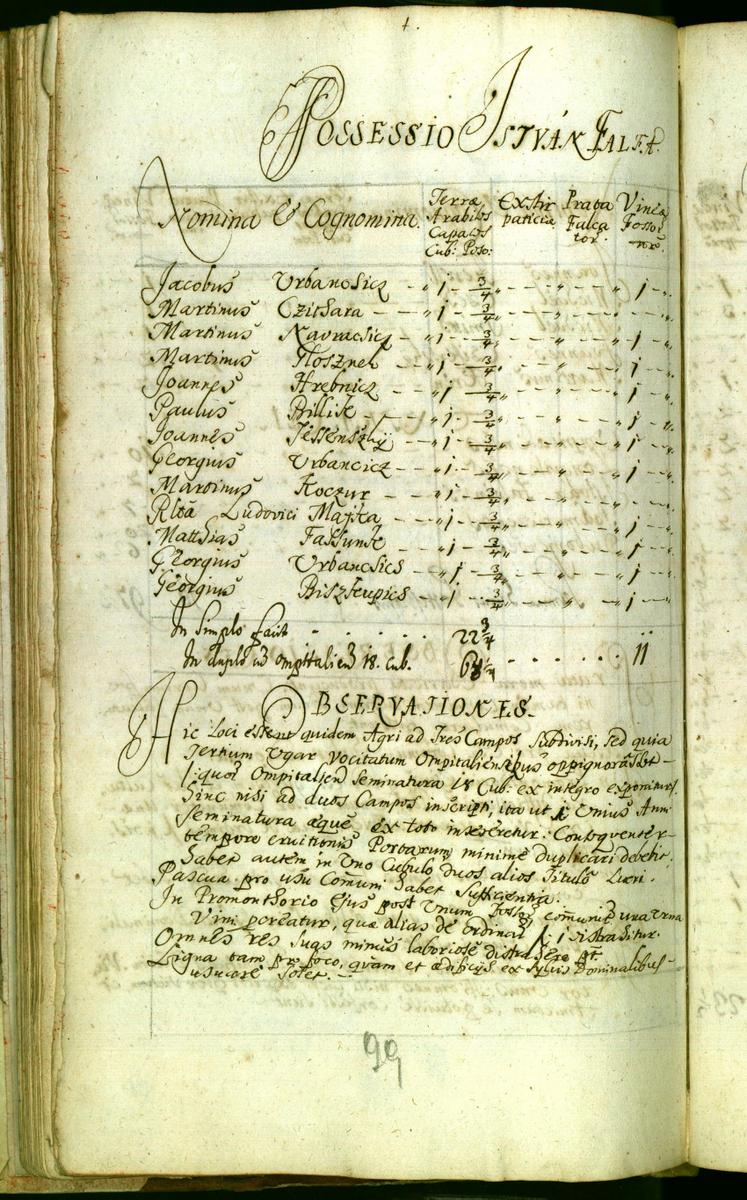 Possessio István Falfa.
Nomina & Cognomina. Terræ Arabiles Capaces Cub: Poso: Exstirpaticia Prata Falcator: Vineæ Fossor:
Jacobus Urbancsicz - - „ 1 - 3/4 „ - - „ - - „ 1 - „
Martinus Czithara - - - „ 1 - 3/4 „ - - „ - - „ 1 - „
Martinus Navracsicz - „ 1 - 3/4 „ - - „ - - „ 1 - „
Martinus Hosznek - - „ 1 - 3/4 „ - - „ - - „ 1 - „
Joannes Hrebnicz - - „ 1 - 3/4 „ - - „ - - „ 1 - „
Paulus Billik - - - „ 1 - 3/4 „ - - „ - - „ 1 - „
Joannes Jessenszky - - „ 1 - 3/4 „ - - „ - - „ 1 - „
Georgius Urbancicz - - „ 1 - 3/4 „ - - „ - - „ 1 - „
Martinus Koczur - - - „ 1 - 3/4 „ - - „ - - „ - - „
Rlta Ludovici Majta - - „ 1 - 3/4 „ - - „ - - „ 1 - „
Matthias Fassunk - - - „ 1 - 3/4 „ - - „ - - „ - - „
Georgius Urbancsics - - „ 1 - 3/4 „ - - „ - - „ 1 - „
Georgius Biszkupics - - „ 1 - 3/4 „ - - „ - - „ 1 - „
In simplo facit . . . . . . 22 3/4
In duplo cum Ompitalien 18. cub. 1/4 . . . . . . 11
Observationes.
Hic Loci essent quidem Agri ad Tres Campos subdivisi, sed quia
Tertium Ugar vocitatum Ompitaliensibus oppignorasset
Ompitalien Seminatura 18 Cub: ex integro exponitur
hinc nisi ad duos Campos inscripti, ita ut Unius Anni
Seminatura æque ex toto insereretur: Consequenter
tempore eruitionis Portarum minime duplicari debebit.
Habet autem in Uno Cubulo duos alios Titulo Lucri.
Pascua pro usu Comuni habet Sufficientia.
In Promonthorio Ejus post Unum Fossor comuniter una Urna
Vini pereatur, quæ alias de ordinar f. 1 distrahitur.
Omnes res suas minus laboriose distrahere pt.
Ligna tam pro foco, quam et ædificijs ex Sylvis Dominalibus
solet. -
99